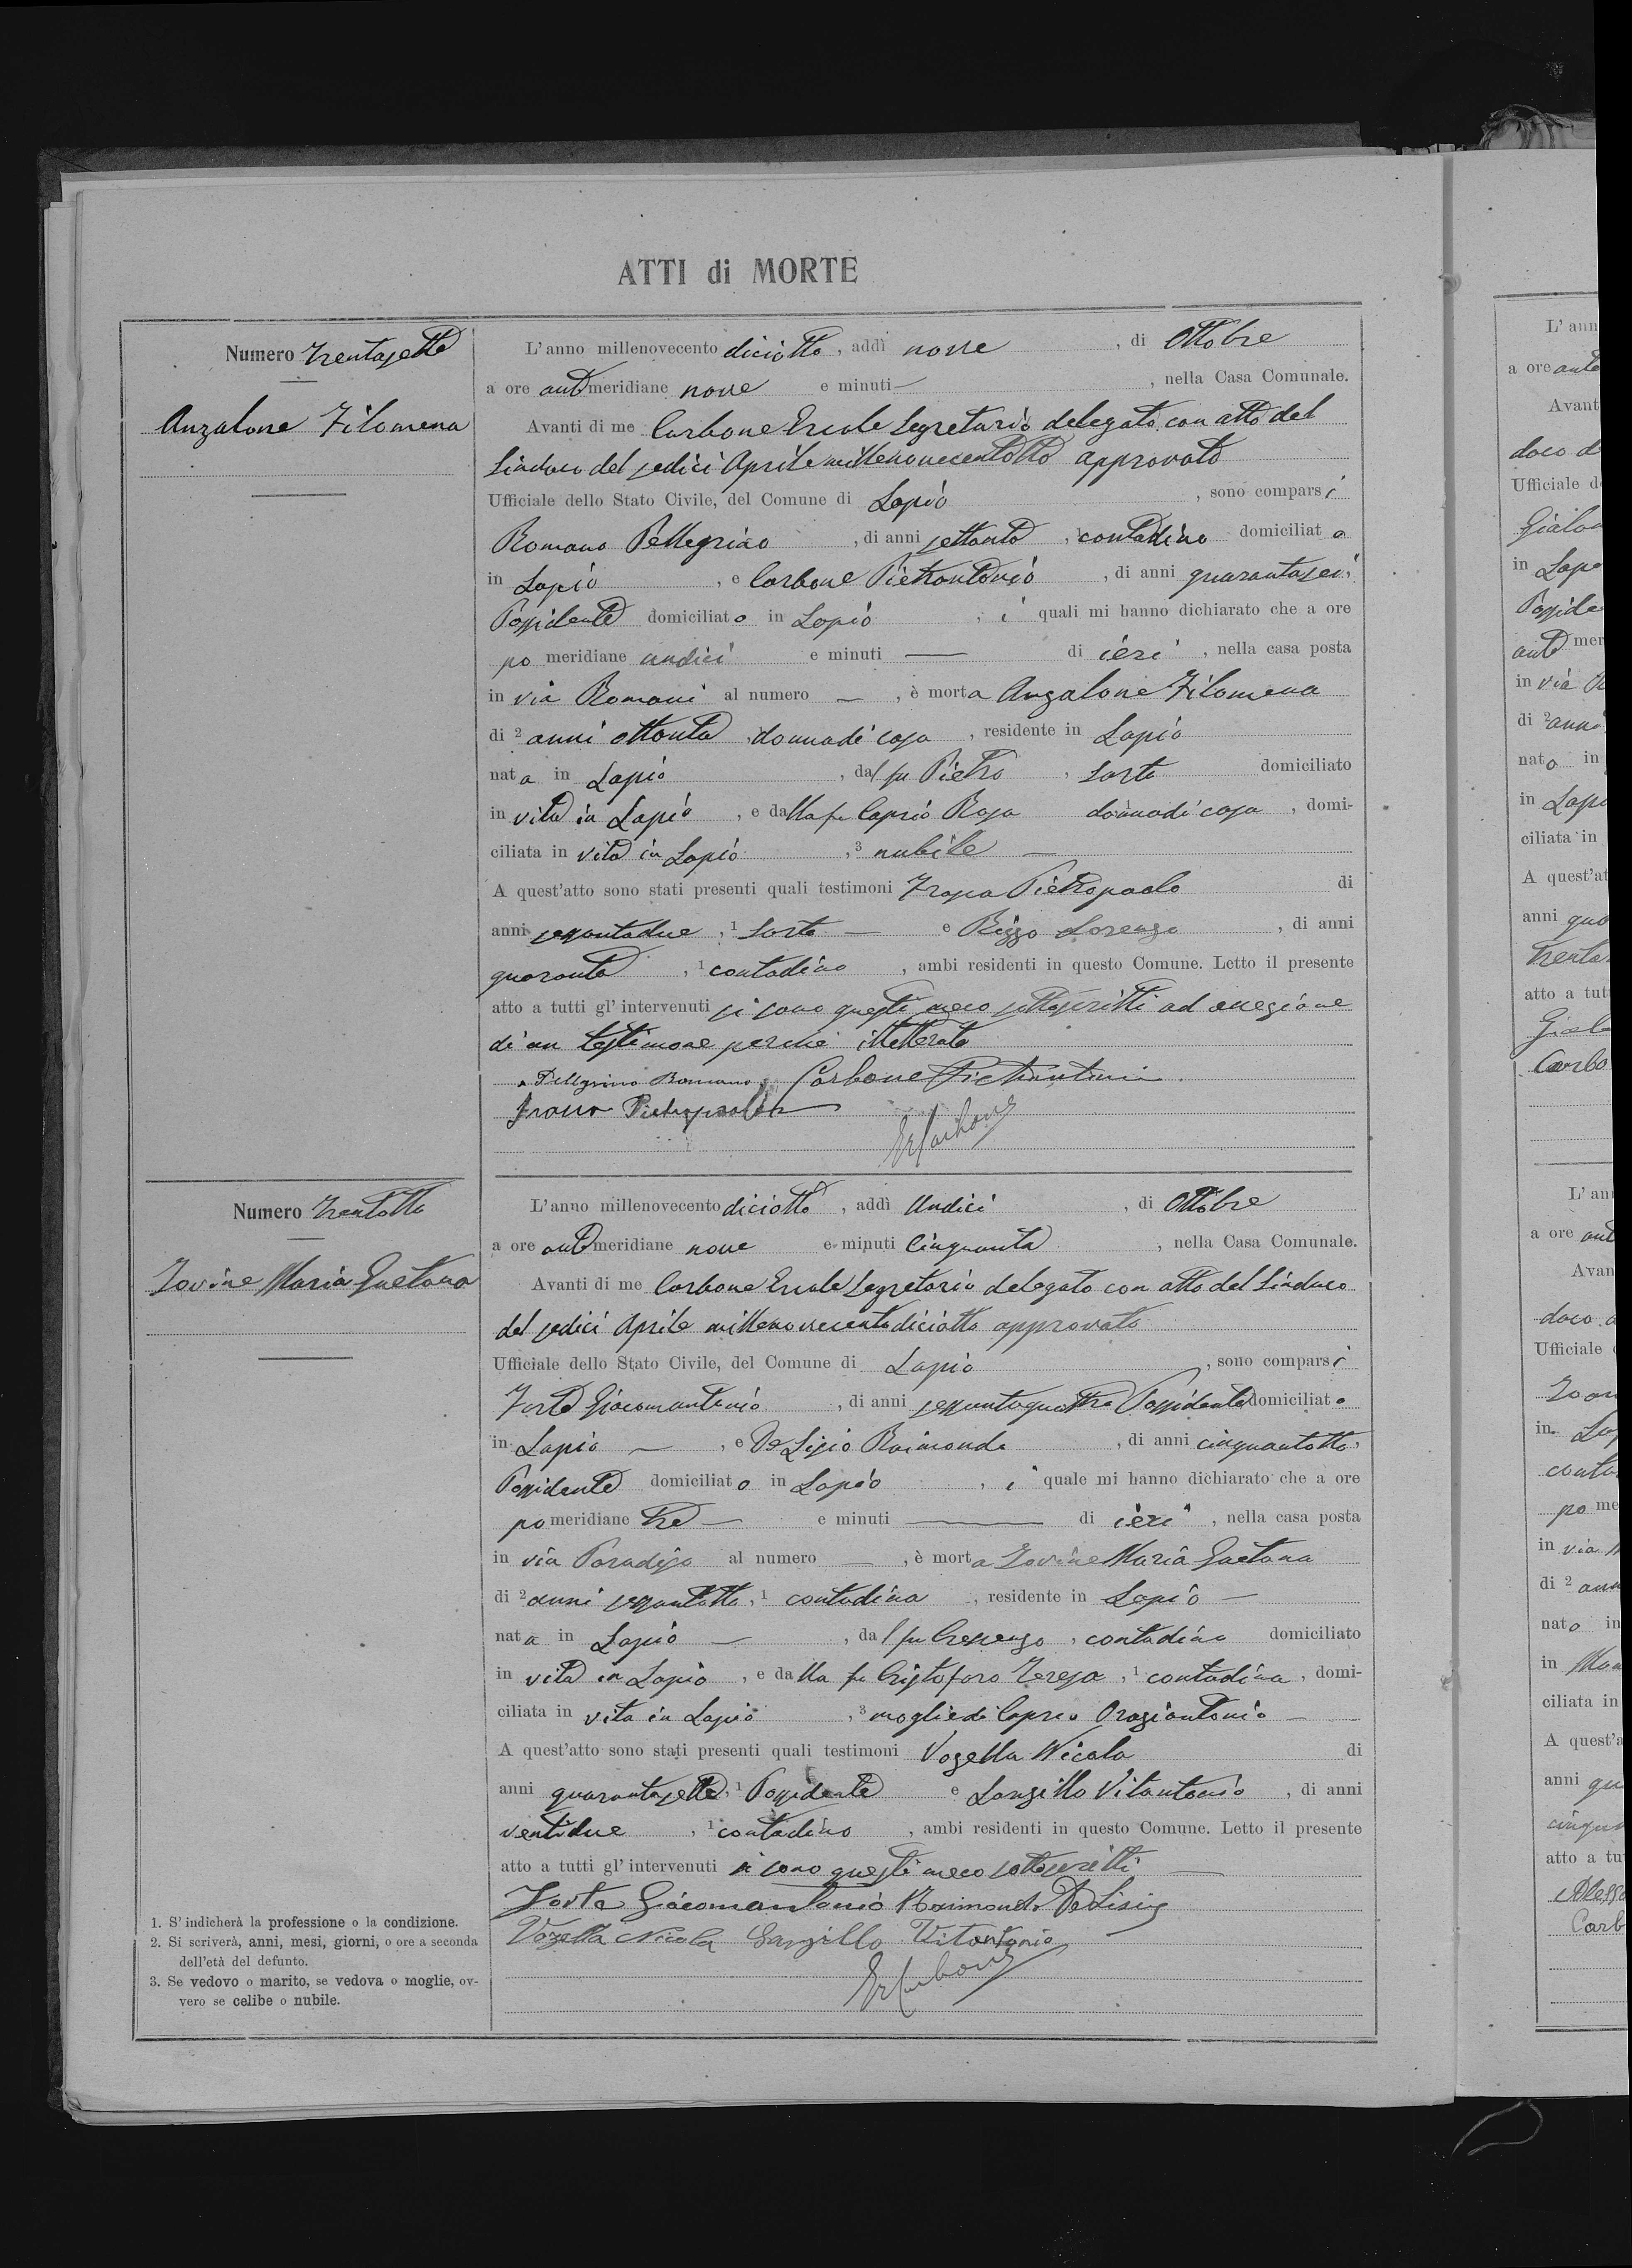 ATTI di MORTE
Numero Trentasette
Anzalone Filomena
L'anno millenovecento diciotto, addì nove, di Ottobre
a ore antimeridiane nove e minuti —, nella Casa Comunale.
Avanti di me Carbone Ercole Segretario delegato con atto del
Sindaco del sedici Aprile millenovecentotto approvato
Ufficiale dello Stato Civile, del Comune di Lapio, sono comparsi
Romano Pellegrino, di anni settanta, contadino domiciliato
in Lapio, e Carbone Pietrantonio, di anni quarantasei,
Possidente domiciliato in Lapio, i quali mi hanno dichiarato che a ore
pomeridiane undici e minuti — di ieri, nella casa posta
in via Romani al numero —, è morta Anzalone Filomena
di ² anni ottanta, donna di casa, residente in Lapio
nata in Lapio, dal fu Pietro, sarto domiciliato
in vita in Lapio, e dalla fu Caprio Rosa donna di casa, domi-
ciliata in vita in Lapio, ³ nubile —
A quest'atto sono stati presenti quali testimoni Pietropaolo di
anni sessantadue, ¹ sarto — e Rizzo Lorenzo, di anni
quaranta, ¹ contadino, ambi residenti in questo Comune. Letto il presente
atto a tutti gl'intervenuti si sono questi meco sottoscritti ad eccezione
di un testimone perché illetterato
Pellegrino Romano Carbone Pietrantonio
Pietropaolo
ErCarbone
Numero Trentotto
Iovine Maria Gaetana
L'anno millenovecento diciotto, addì Undici, di Ottobre
a ore antimeridiane nove e minuti Cinquanta, nella Casa Comunale.
Avanti di me Carbone Ercole Segretario delegato con atto del Sindaco
del sedici Aprile millenovecentodiciotto approvato
Ufficiale dello Stato Civile, del Comune di Lapio, sono comparsi
Forte Giacomantonio, di anni sessantaquattro Possidente domiciliato
in Lapio —, e De Lisio Raimondo, di anni cinquantotto,
Possidente domiciliato in Lapio, i quale mi hanno dichiarato che a ore
pomeridiane tre — e minuti — di ieri, nella casa posta
in via Paradiso al numero —, è morta Iovine Maria Gaetana
di ² anni sessantotto, ¹ contadina, residente in Lapio —
nata in Lapio —, dal fu Crescenzo, contadino domiciliato
in vita in Lapio, e dalla fu Cristoforo Teresa, ¹ contadina, domi-
ciliata in vita in Lapio, ³ moglie di Caprio Oraziantonio —
A quest'atto sono stati presenti quali testimoni Vozella Nicola di
anni quarantasette, ¹ Possidente e Sanzillo Vitantonio, di anni
ventidue, ¹ contadino, ambi residenti in questo Comune. Letto il presente
atto a tutti gl'intervenuti si sono questi meco sottoscritti —
Forte Giacomantonio Raimondo De Lisio
Vozella Nicola Sanzillo Vitantonio
ErCarbone
1. S'indicherà la professione o la condizione.
2. Si scriverà, anni, mesi, giorni, o ore a seconda
dell'età del defunto.
3. Se vedovo o marito, se vedova o moglie, ov-
vero se celibe o nubile.